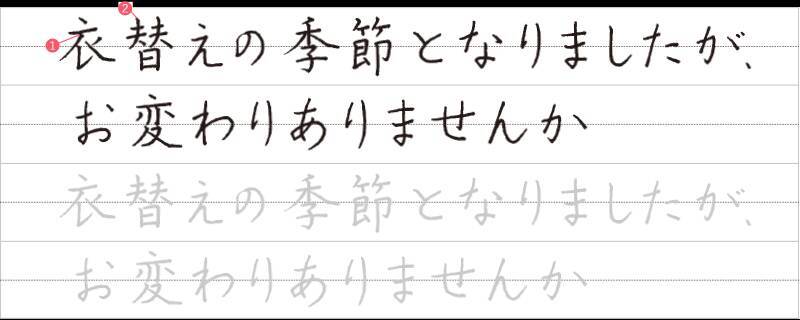 ①②
衣替えの季節となりましたが、
お変わりありませんか
衣替えの季節となりましたが、
お変わりありませんか